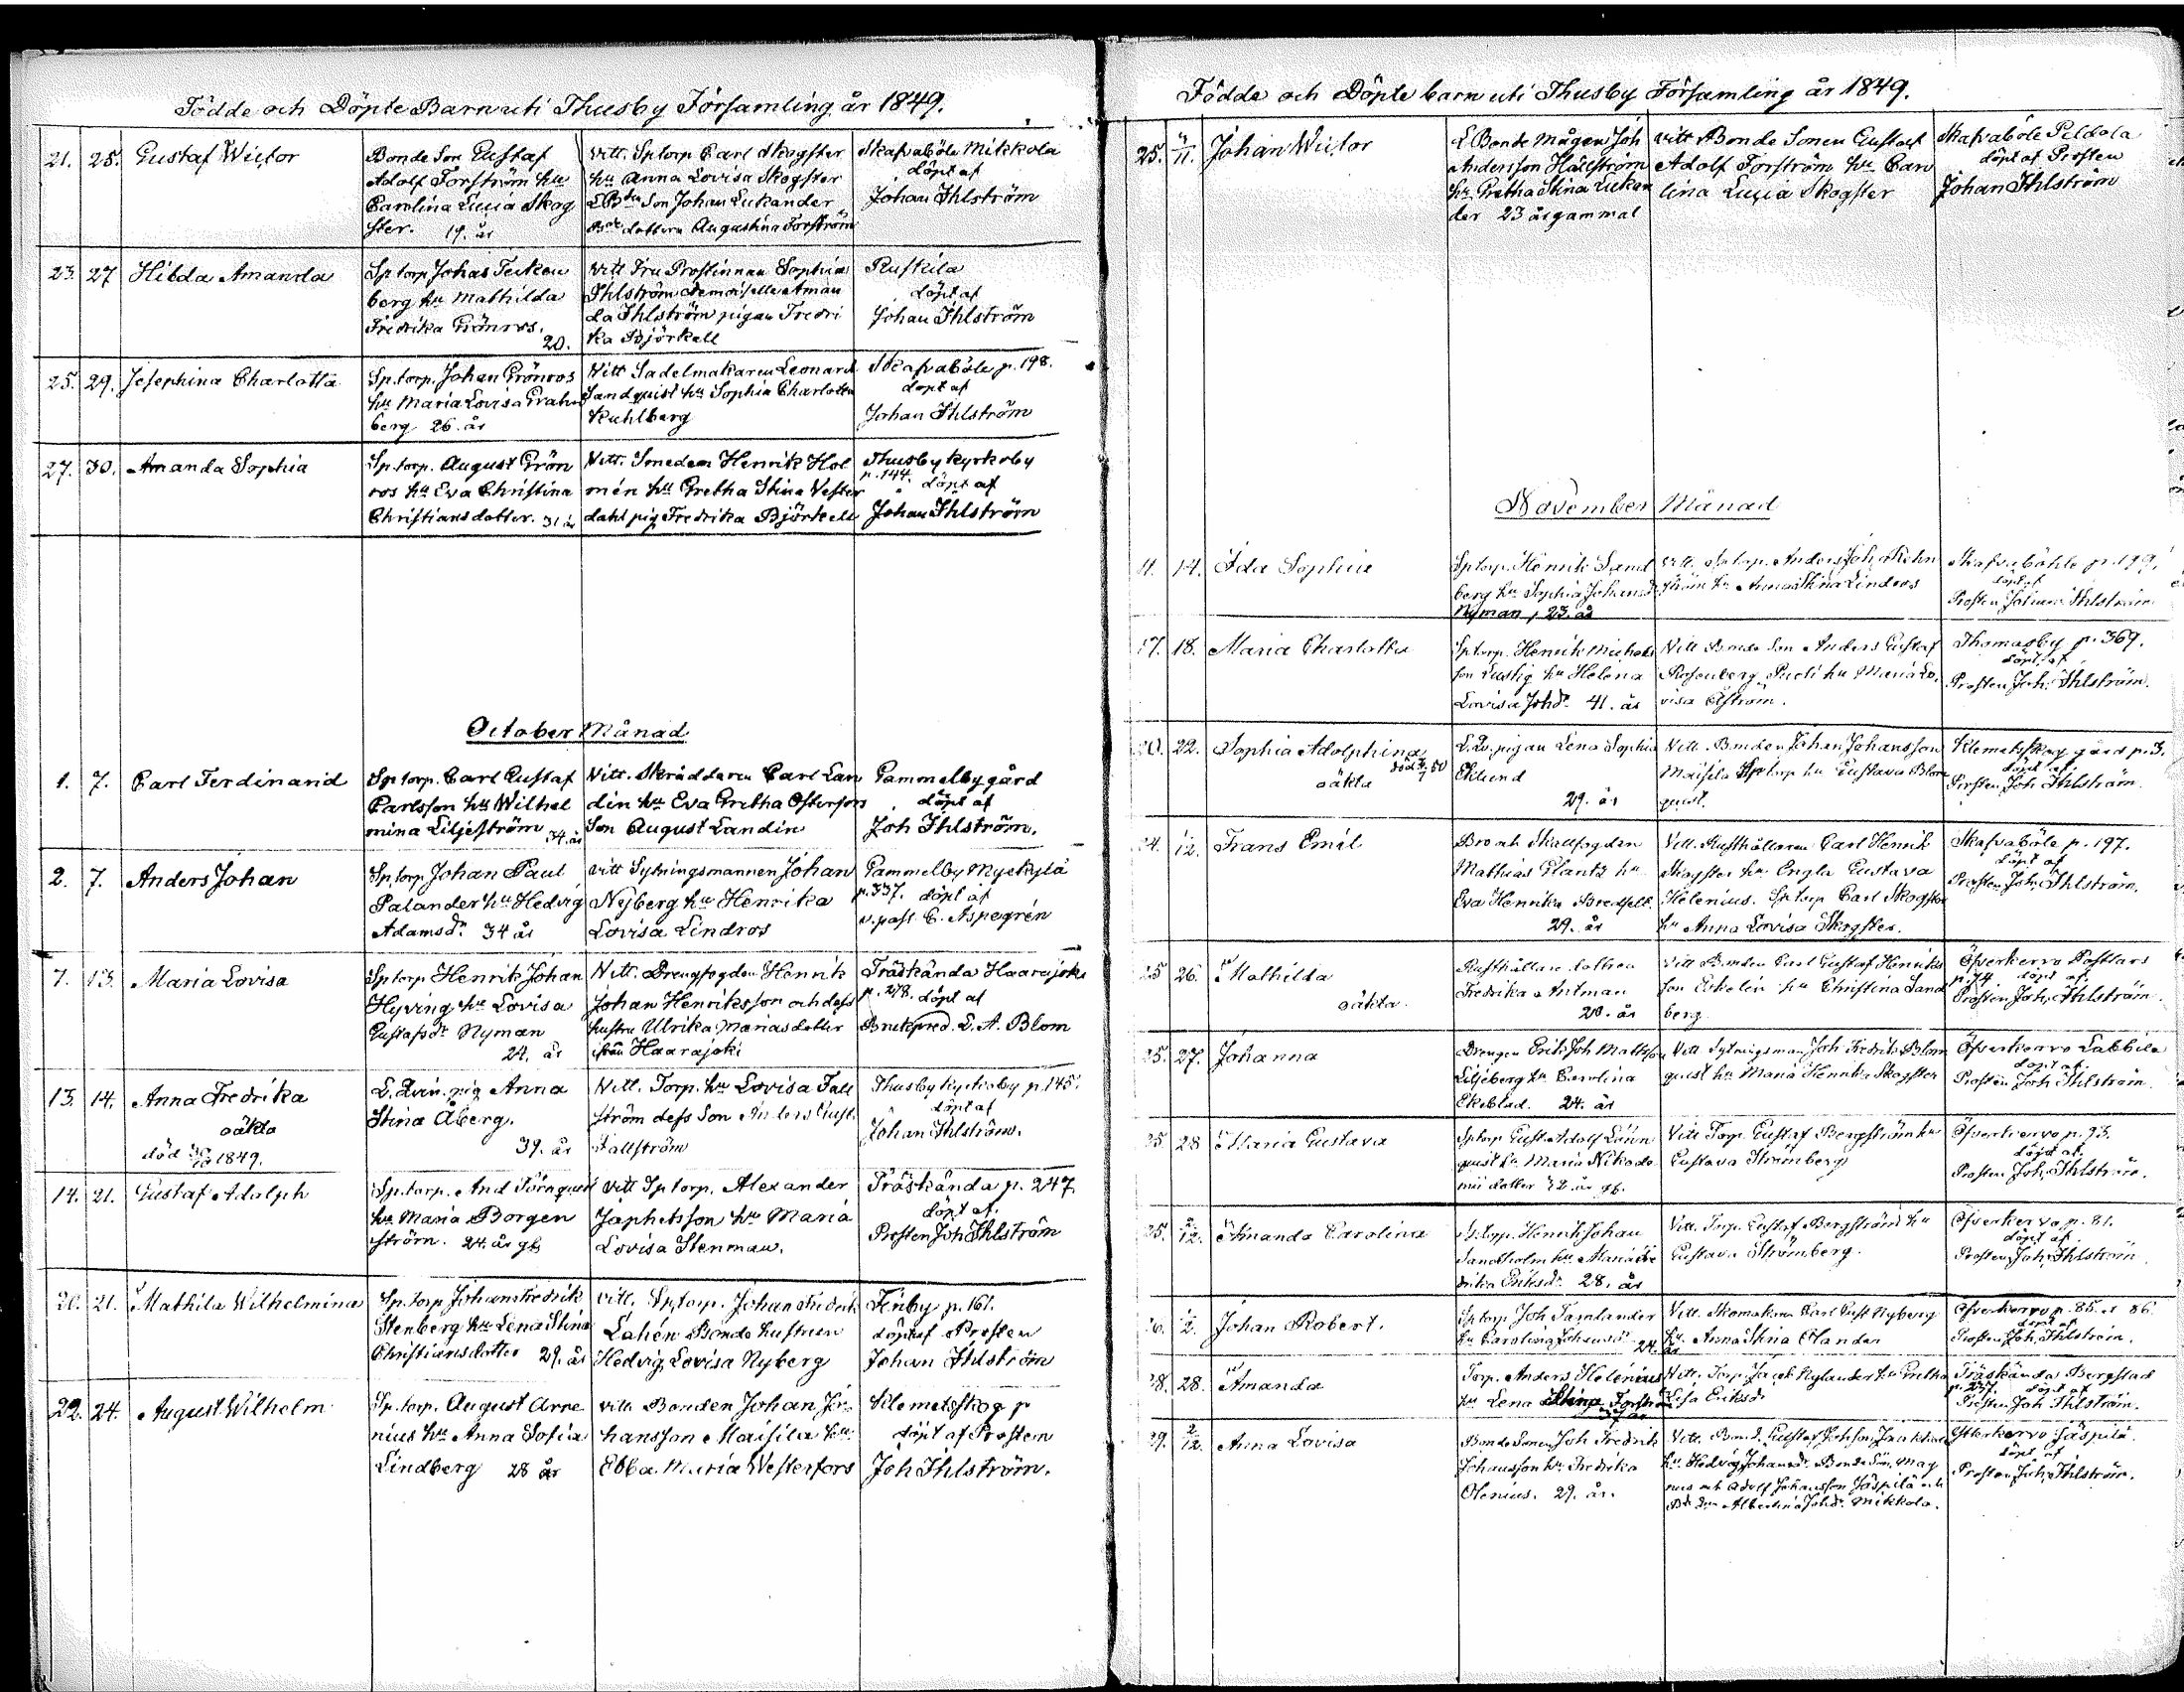 Födde och Döpte Barn uti Thusby Församling år 1849.
21. 25. Gustaf Wictor
Bonde Son Gustaf
Adolf Forström hu
Carolina Lucia Skog
ster. 19. år
Vitt. Sptorp Carl Skogster
hu Anna Lovisa Skogster
Son Johan Lukander
dottern Augustina Forström
Skafvaböle Mikkola
döpt af
Johan Ihlström
23. 27 Hilda Amanda
Sp torp Johas
berg hu Mathilda
Fredrika Grönros.
20.
Vitt Fru Prostinnan Sophia
Ihlström demoiselle Aman
da Ihlström pigan Fredri
ka Björkell
Ruskila
döpt af
Johan Ihlström
25. 29. Josephina Charlotta
Sp.torp. Johan Grönros
hu Maria Lovisa Grahn
berg 26. år
Vitt Sadelmakaren Leonard
Sandquist hu Sophia Charlotta
Kuhlberg
Skafvaböle p. 198.
döpt af
Johan Ihlström
27. 30. Amanda Sophia
Sp.torp. August Grön
ros hu Eva Christina
Christiansdotter. 31 år
Vitt. Smeden Henrik Hol
mén hu Gretha Stina Vester
dahl pig Fredrika Björkell
Thusby kyrkoby
p. 144. döpt af
Johan Ihlström
October Månad
1. 7. Carl Ferdinand
Sp torp. Carl Gustaf
Carlsson hu Wilhel
mina Liljeström 34. år
Vitt. Skräddaren Carl Lan
din hu Eva Gretha Osterfors
Son August Landin
Gammelby gård
döpt af
Joh Ihlström.
2. 7. Anders Johan
Sp.torp Johan Paul
Palander hu Hedvig
Adamsdr. 34 år
Vitt Sytningsmannen Johan
Nyberg hu Henrika
Lovisa Lindros
Gammelby Myckylä
p. 337. döpt af
v. past. C. Aspegrén
7. 13. Maria Lovisa
Sptorp Henrik Johan
Hyving hu Lovisa
Gustafsdr Nyman
24. år
Vitt. Drengfogden Henrik
Johan Henriksson och dess
hustru Ulrika Mariasdotter
ifrån Haarajoki
Träskända Haarajoki
p. 278. döpt af
Brukspred. L. A. Blom
13. 14. Anna Fredrika
oäkta
död 30/10 1849.
pig Anna
Stina Åberg.
39. år
Vitt. Torp. hu Lovisa Fall
ström dess Son Anders Gust.
Fallström
Thusby Kyrkoby p. 145.
döpt af
Johan Ihlström.
14. 21. Gustaf Adolph
Sp.torp. And Törnquist
hu Maria Borgen
ström. 24. år gb.
Vitt Sp torp. Alexander
Japhetsson hu Maria
Lovisa Stenman.
Träskända p. 247.
döpt af.
Prosten Joh Ihlström
20. 21. Mathila Wilhelmina
Sp.torp Johan Fredrik
Stenberg hu Lena Stina
Christiansdotter 29. år
Vitt. Sptorp. Johan Fredrik
Lahén Bonde hustrun
Hedvig Lovisa Nyberg
Finby p. 161.
döpt af Prosten
Johan Ihlström
22. 24. August Wilhelm
Sp.torp. August Arre
nius hu Anna Sofia
Lindberg 28 år
Vitt Bonden Johan Jo
hansson Maisila hu
Ebba Maria Westerfors
Klemetskog p
döpt af Prosten
Joh Ihlström.
Födde och Döpte barn uti Thusby Församling år 1849.
25. 4/11. Johan Wictor
Bonde Mågen Joh
Andersson Hällström
hu Gretha Stina Lukan
der 23 år gammal
Vitt Bonde Sonen Gustaf
Adolf Forström hu Caro
lina Lucia Skogster
Skafvaböle Peldola
döpt af Prosten
Johan Ihlström
November Månad
11. 14. Ida Sophia
Sptorp. Henrik Sand
berg hu Sophia Johansd
Nyman, 23. år
Vitt. Sptorp. Anders Joh
ström hu Anna Stina Lindros
Skafvaböhle p. 199.
döpt af
Prosten Johan Ihlström
17. 18. Maria Charlotta
Sptorp. Henrik Michels
son Lustig hu Helena
Lovisa Johdr 41. år
Vitt Bonde Son Anders Gustaf
Rosenberg hu Maria Lo
visa Elström.
Thomasby p. 369.
döpt af
Prosten Joh. Ihlström.
20. 22. Sophia Adolphina
oäkta
pigan Lena Sophia
Eklund
29. år
Vitt. Bonden Johan Johansson
Maisila Sptorp hu Gustava Blom
quist.
Klemetskog gård p. 3.
döpt af
Prosten Joh Ihlström
24. /12. Frans Emil
Bro och Skallfogden
Mathias Glantz hu
Eva Henrika Bredfelt.
29. år
Vitt. Rusthållaren Carl Henrik
Skogster hu Engla Gustava
Helenius. Sptorp Carl Skogster
hu Anna Lovisa Skogster.
Skafvaböle p. 197.
döpt af
Prosten Joh. Ihlström.
25 26. Mathilda
oäkta
Rusthållare dottren
Fredrika Antman
20. år
Vitt Bonden Carl Gustaf Henriks
son hu Christina Sand
berg
Öfverkervo
p. 74. döpt af
Prosten Joh. Ihlström.
25. 27. Johanna
Drengen Erik Joh Mattsson
Liljeberg hu Carolina
Ekeblad. 24. år
Vitt Sytningsman Joh Fredrik Blom
quist hu Maria Henrika Skogster
Öfverkervo Labbila
döpt af
Prosten Joh Ihlström
25 28 Maria Gustava
Sptorp Gust. Adolf Lönn
quist hu Maria Nikode
mii dotter 32 år gb.
Vitt Torp. Gustaf Bergström hu
Gustava Strömberg
Öfverkervo p. 93.
döpt af.
Prosten Joh. Ihlström.
25. 2/12. Amanda Carolina
Sptorp. Henrik Johan
Sandholm hu Maria Fre
drika Eriksdr 28. år
Vitt. Torp. Gustaf Bergström hu
Gustava Strömberg.
Öfverkervo p. 81.
döpt af
Prosten Joh. Ihlström
26. /12. Johan Robert.
Sptorp Joh Tamlander
hu Carolina Johansdr 24. år
Vitt. Skomakaren Carl Gust Nyberg
hu Anna Stina Elander
Öfverkervo p. 85. et 86.
döpt af
Prosten Joh. Ihlström.
28. 28. Amanda
Torp. Anders Helénius
hu Lena Stina Forström
Vitt. Torp. Jacob Nylander hu Gretha
Lisa Eriksdr
Träskända Bergstad
döpt af
Prosten Joh Ihlström.
29. 2/12. Anna Lovisa
Bonde Sonen Joh Fredrik
Johansson hu Fredrika
Olenius. 29. år.
Vitt. Bond. Gustaf Johsson
hu Hedvig Johansdr. Bonde Son. Mag
nus och Adolf Johansson Jäspilä och
Albertina Johdr. Mikkola.
Ytterkervo Jäspilä.
döpt af
Prosten Joh. Ihlström.